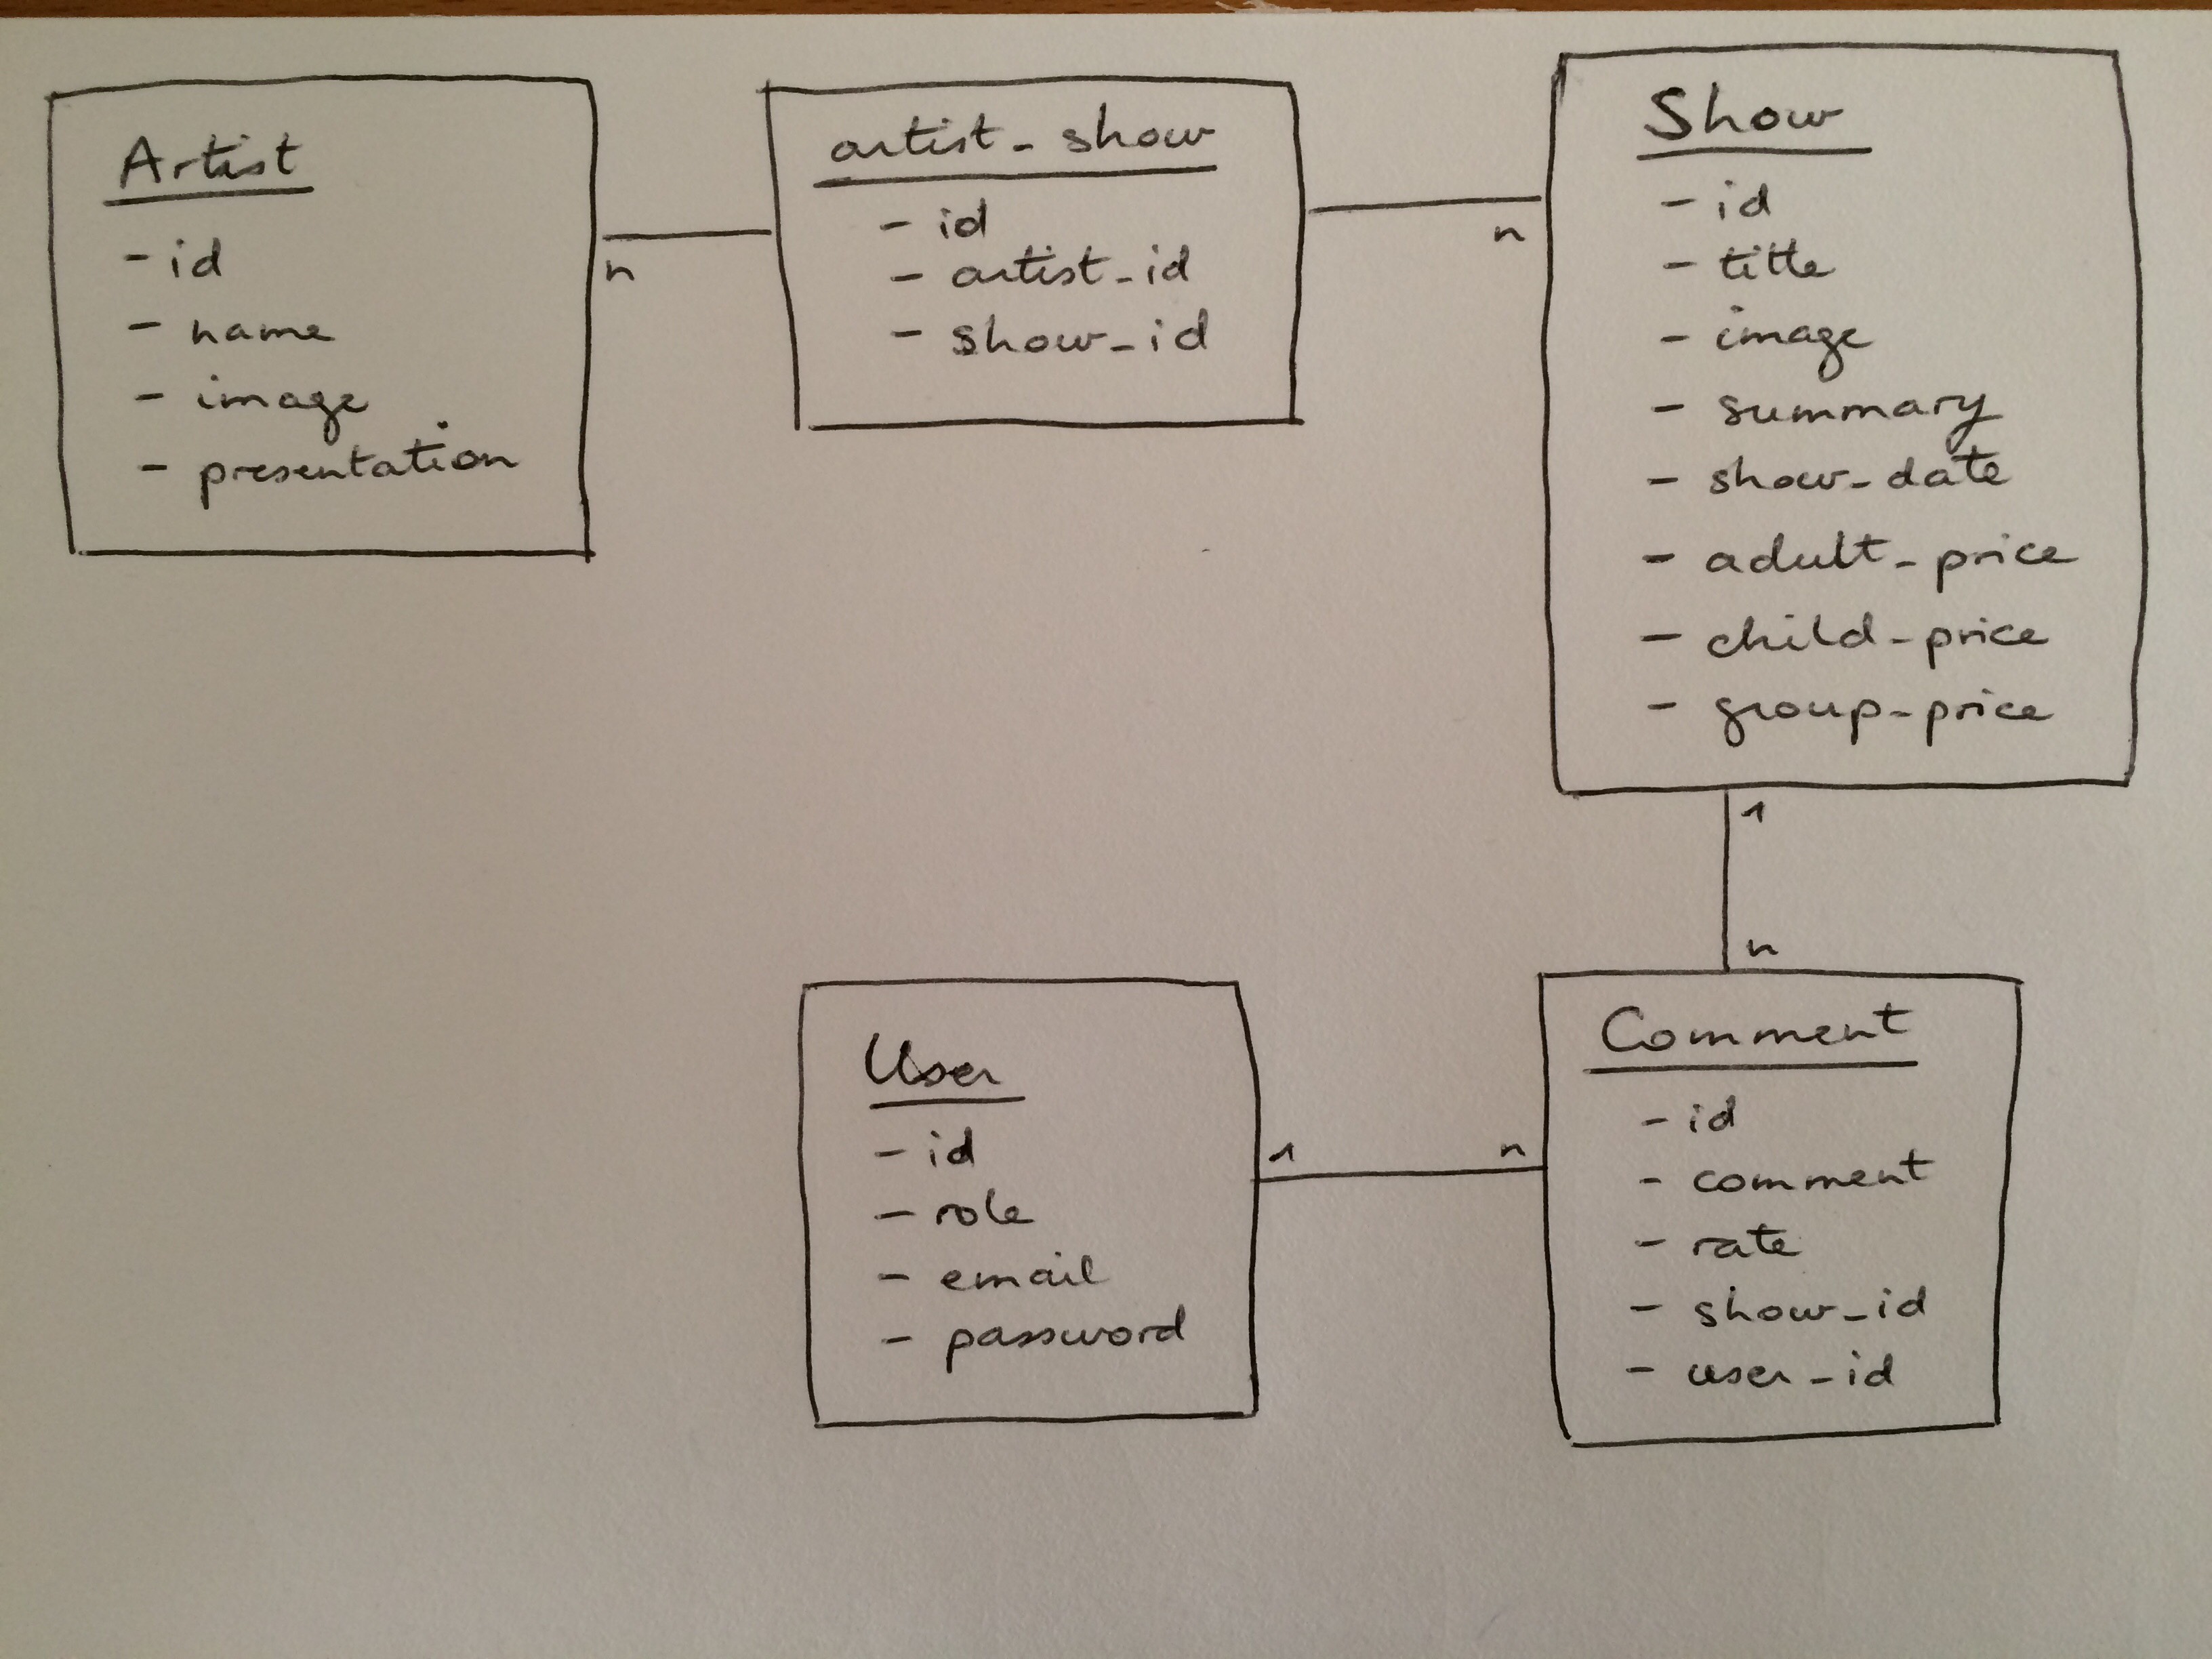 Artist
- id
- name
- image
- presentation
n
artist_show
- id
- artist_id
- show_id
n
Show
- id
- title
- image
- summary
- show_date
- adult_price
- child_price
- group_price
1
n
User
- id
- role
- email
- password
1
n
Comment
- id
- comment
- rate
- show_id
- user_id